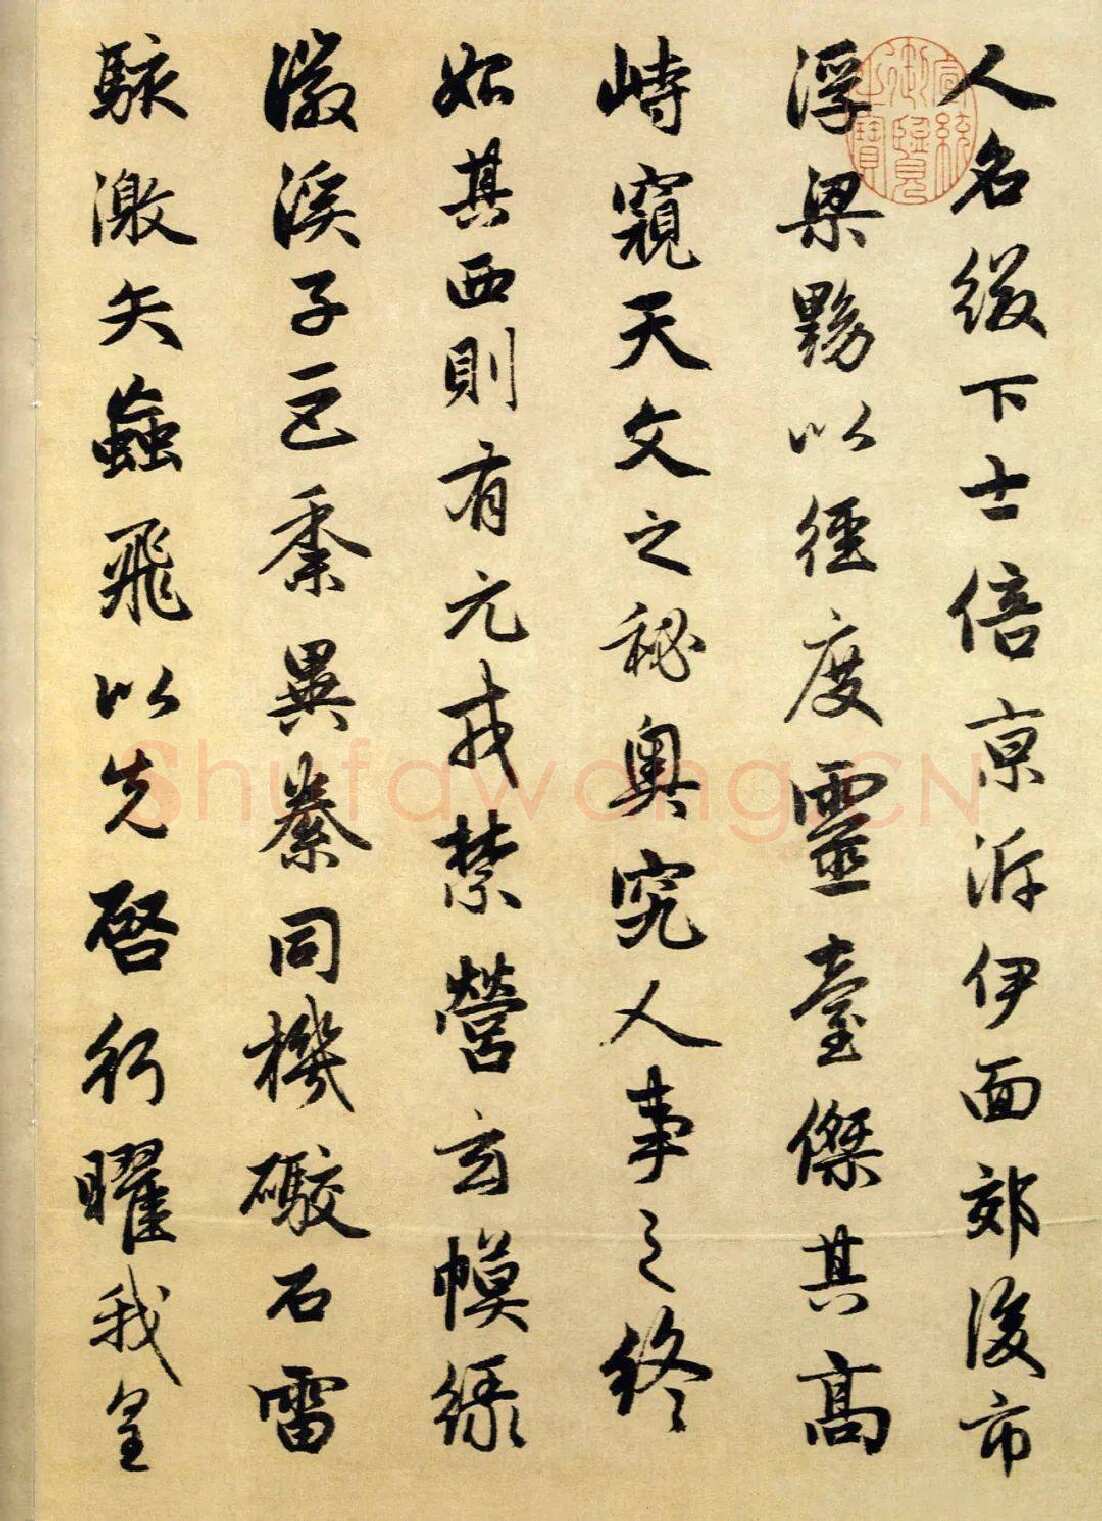 人名綴下士倍京泝伊面郊後市
浮梁黝以徑度靈臺傑其高
峙窺天文之秘奧究人事之終
始其西則有元戎禁營玄幙綠
徽溪子巨黍異絭同機礮石雷
駭激矢蝱飛以先啓行曜我皇
宣統御覽之寶
Shufawang.CN